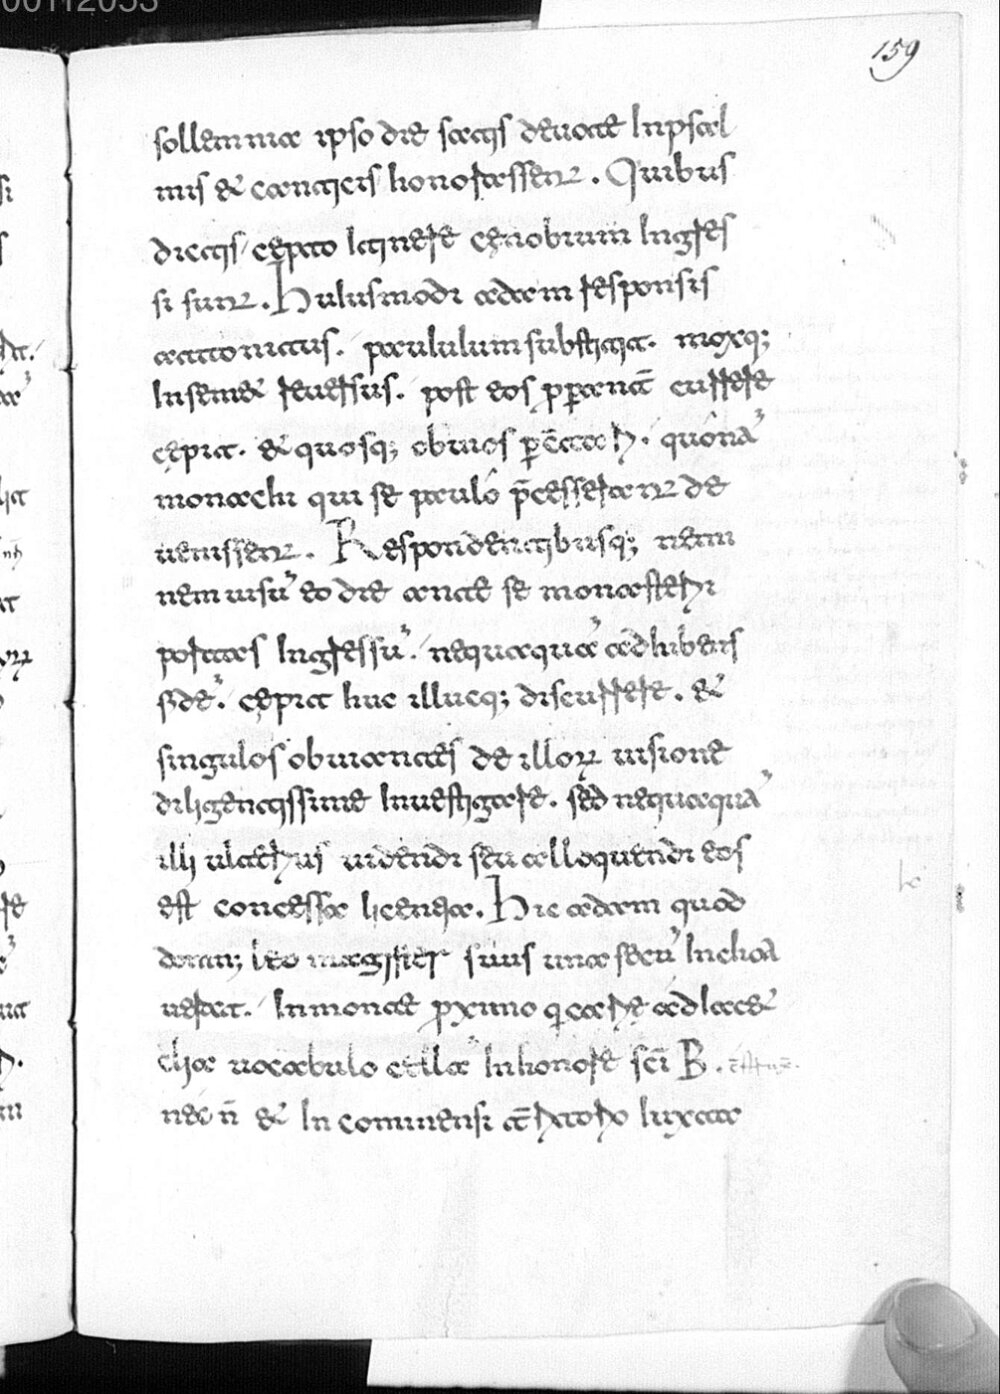 00112053
159
sollemnia ipso die satis deuote In psal
mis & canticis honorassent. Quibus
dictis cępto Itinere cęnobium Ingres
si sunt. Huiusmodi adam responsis
attonitus. paululum substitit. moxq;
In semet reuersus. post eos ppantē currere
cępit. & quosq; obuios
monachi qui se paulo p̄cesserant de
uenissent. Respondentibusq; nemi
nem uisu eo die ante se monasterii
portas Ingressu. nequaquā adhibens
fidē. cępit huc illucq; discurrere. &
singulos obuiantes de illoꝝ uisione
diligentissime Inuestigare. sed nequaquā
illi ulterius uidendi seu alloquendi eos
est concessa licentia. Hic adam quod
dam; leo magister suus una secū Inchoa
uerat. In monte pximo qi eare ad lacet
cha uocabulo cella In honore sc̄i B.
nec n̄ & In comnensi at̄ritorio Iuxta